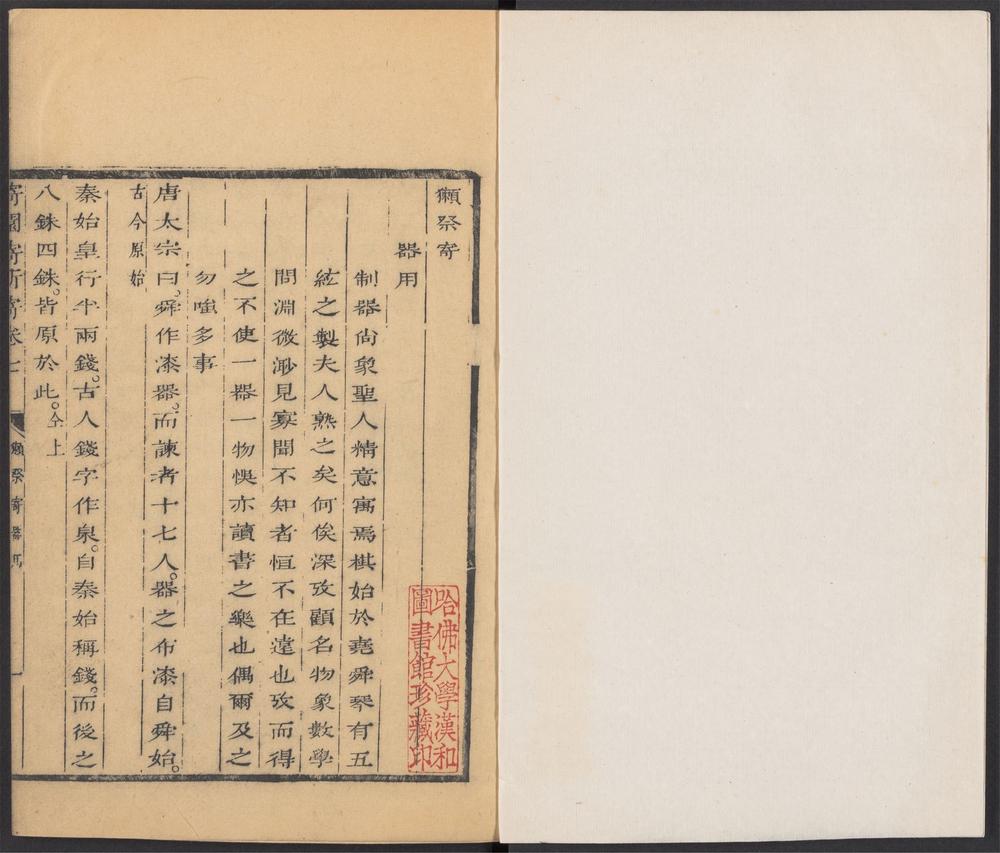 獺祭寄
器用
制器尙象聖人精意寓焉棋始於堯舜琴有五
絃之製夫人熟之矣何俟深攷顧名物象數學
問淵微渺見寡聞不知者恒不在遠也攷而得
之不使一器一物悞亦讀書之樂也偶爾及之
勿嗤多事
唐太宗曰。舜作漆器。而諫者十七人。器之布漆自舜始。
古今原始
秦始皇行半兩錢。古人錢字作泉。自秦始稱錢。而後之
八銖四銖。皆原於此。仝上
寄園寄所寄卷七 獺祭寄器用
哈佛大學漢和
圖書館珍藏印